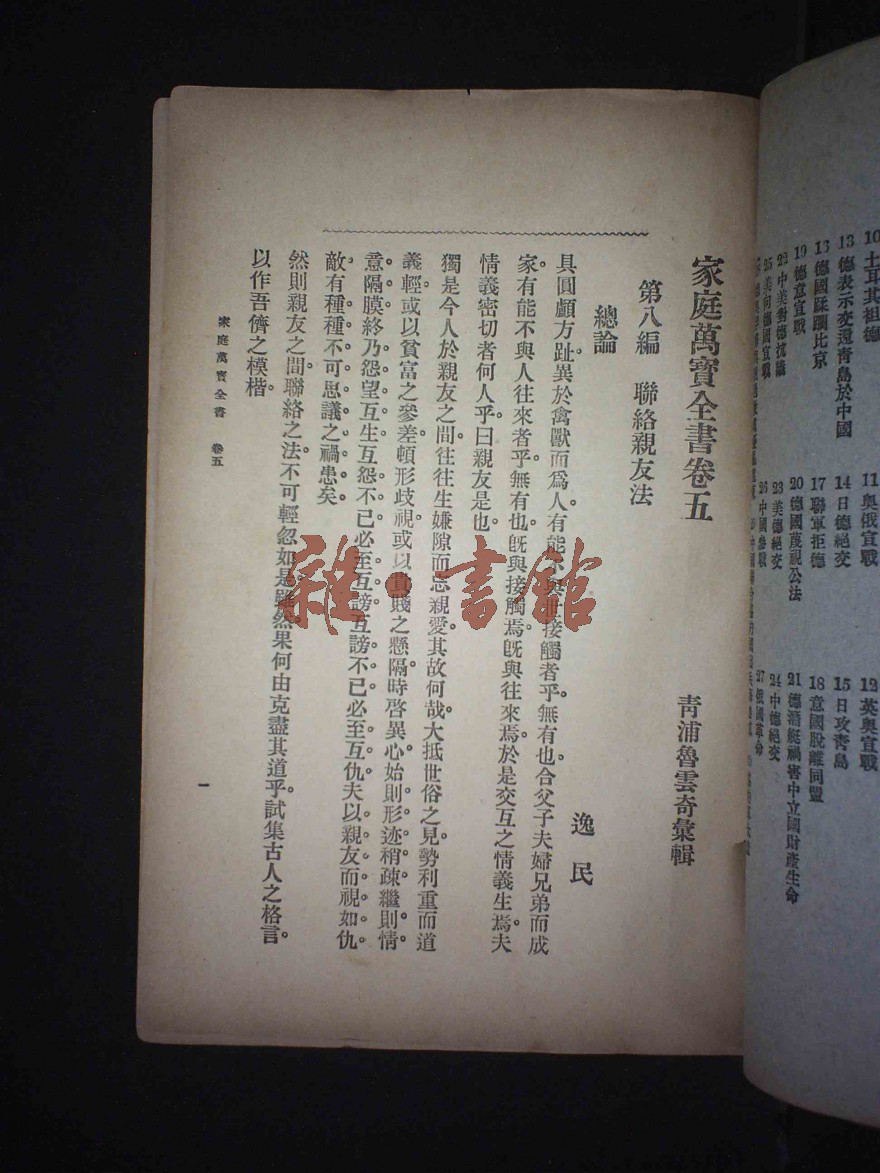 家庭萬寶全書卷五
青浦魯雲奇彙輯
第八編　聯絡親友法
總論
逸民
具圓顱方趾異於禽獸而爲人有能不與世接觸者乎。無有也合父子夫婦兄弟而成
家。有能不與人往來者乎無有也旣與接觸焉旣與往來。焉於是交互之情義生焉夫
情義密切者何人乎曰親友是也
獨是今人於親友之間往往生嫌隙而忘親愛其故何哉。大抵世俗之見勢利重而道
義輕或以貧富之參差頓形歧視或以貴賤之懸隔時啓異心始則形迹稍疎繼則情
意隔膜終乃怨望互生互怨不已必至互謗互謗不已必至互仇夫以親友而視如仇
敵有種種不可思議之禍患矣
然則親友之間聯絡之法不可輕忽如是雖然果何由克盡其道乎試集古人之格言。
以作吾儕之模楷。
家庭萬寶全書　卷五
一
10 土耳其祖德
11 奥俄宣戰
12 英奥宣戰
13 德表示交還青島於中國
14 日德絕交
15 日攻靑島
16 德國蹂躪比京
17 聯軍拒德
18 意國脫離同盟
19 德意宣戰
20 德國蔑視公法
21 德潛艇禍害中立國財產生命
22 中美對德抗議
23 美德絕交
24 中德絕交
25 美向德國宣戰
26 中國參戰
27 俄國革命
雜·書館